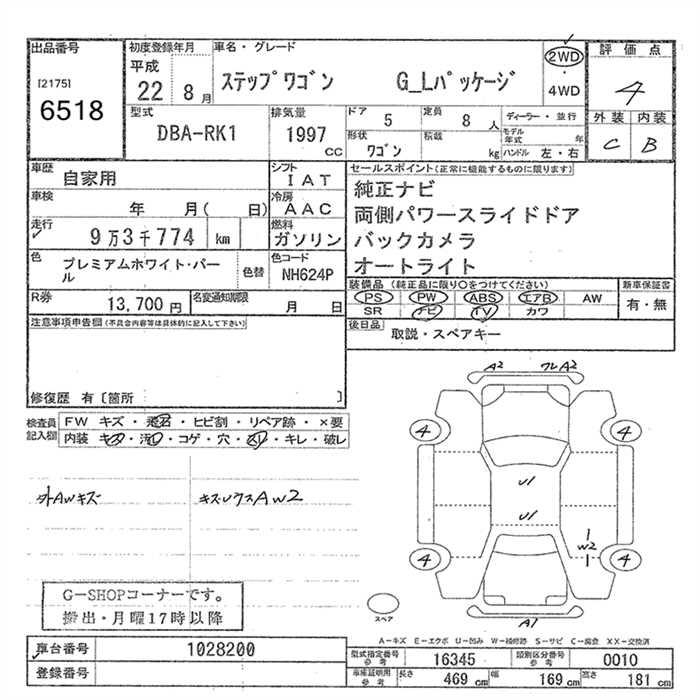 出品番号
[2175]
6518
初度登録年月
平成
22 8月
車名・グレード
ステップワゴン G_Lパッケージ
2WD
・
4WD
評価点
4
型式
DBA-RK1
排気量
1997
CC
ドア 5
定員 8 人
ディーラー・並行
形状
ワゴン
積載
kg
モデル年式 年
ハンドル 左・右
外装 内装
C B
車歴
自家用
シフト
IAT
車検
年 月( 日)
冷房
AAC
走行
9万3千774 km
燃料
ガソリン
色
プレミアムホワイト・パール
色替
色コード
NH624P
R券
13,700円
名変通知期限
月 日
セールスポイント(正常に機能するものに限ります)
純正ナビ
両側パワースライドドア
バックカメラ
オートライト
装備品 (純正品に限り○をつけてください)
PS PW ABS エアB AW
SR ナビ TV カワ
新車保証書
有・無
後日品
取説・スペアキー
注意事項申告欄(不具合内容等は具体的に記入して下さい)
修復歴 有〔箇所 〕
検査員
記入欄
FW キズ・飛石・ヒビ割・リペア跡・×要
内装 キズ・汚れ・コゲ・穴・スレ・キレ・破レ
外AWキズ
AW2
A2
ワレA2
4
4
U1
U1
W2
4
4
A1
スペア
G-SHOPコーナーです。
搬出・月曜17時以降
A-キズ E-エクボ U-凹み W-補修跡 S-サビ C-腐食 XX-交換済
車台番号
1028200
登録番号
型式指定番号
参考
16345
類別区分番号
参考
0010
車庫証明用
参考
長さ 469 cm
幅 169 cm
高さ 181 cm